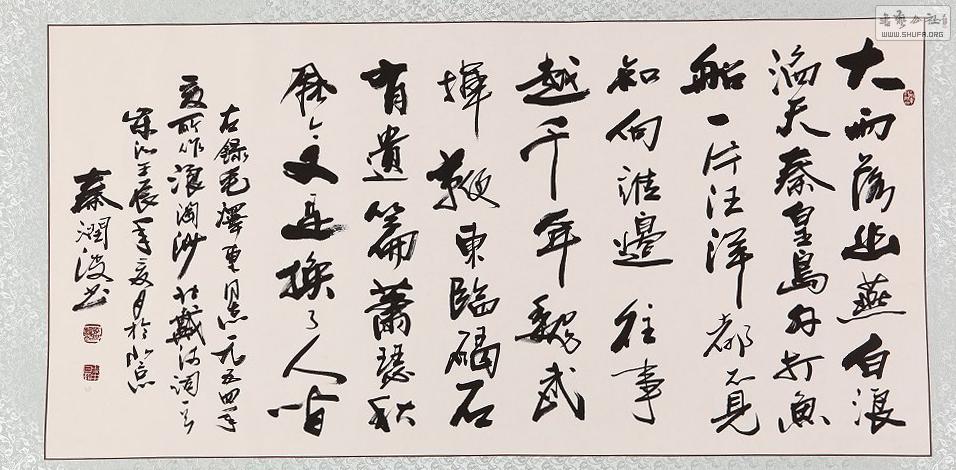 大雨落幽燕白浪
滔天秦皇島外打魚
船一片汪洋都不見
知向誰邊往事
越千年魏武
揮鞭東臨碣石
有遺篇蕭瑟秋
風今又是換了人間
右錄毛澤東同志一九五四年
夏所作浪淘沙北戴河詞
壬辰年夏月於北京
秦潤波書
書藝公社
WWW.SHUFA.ORG